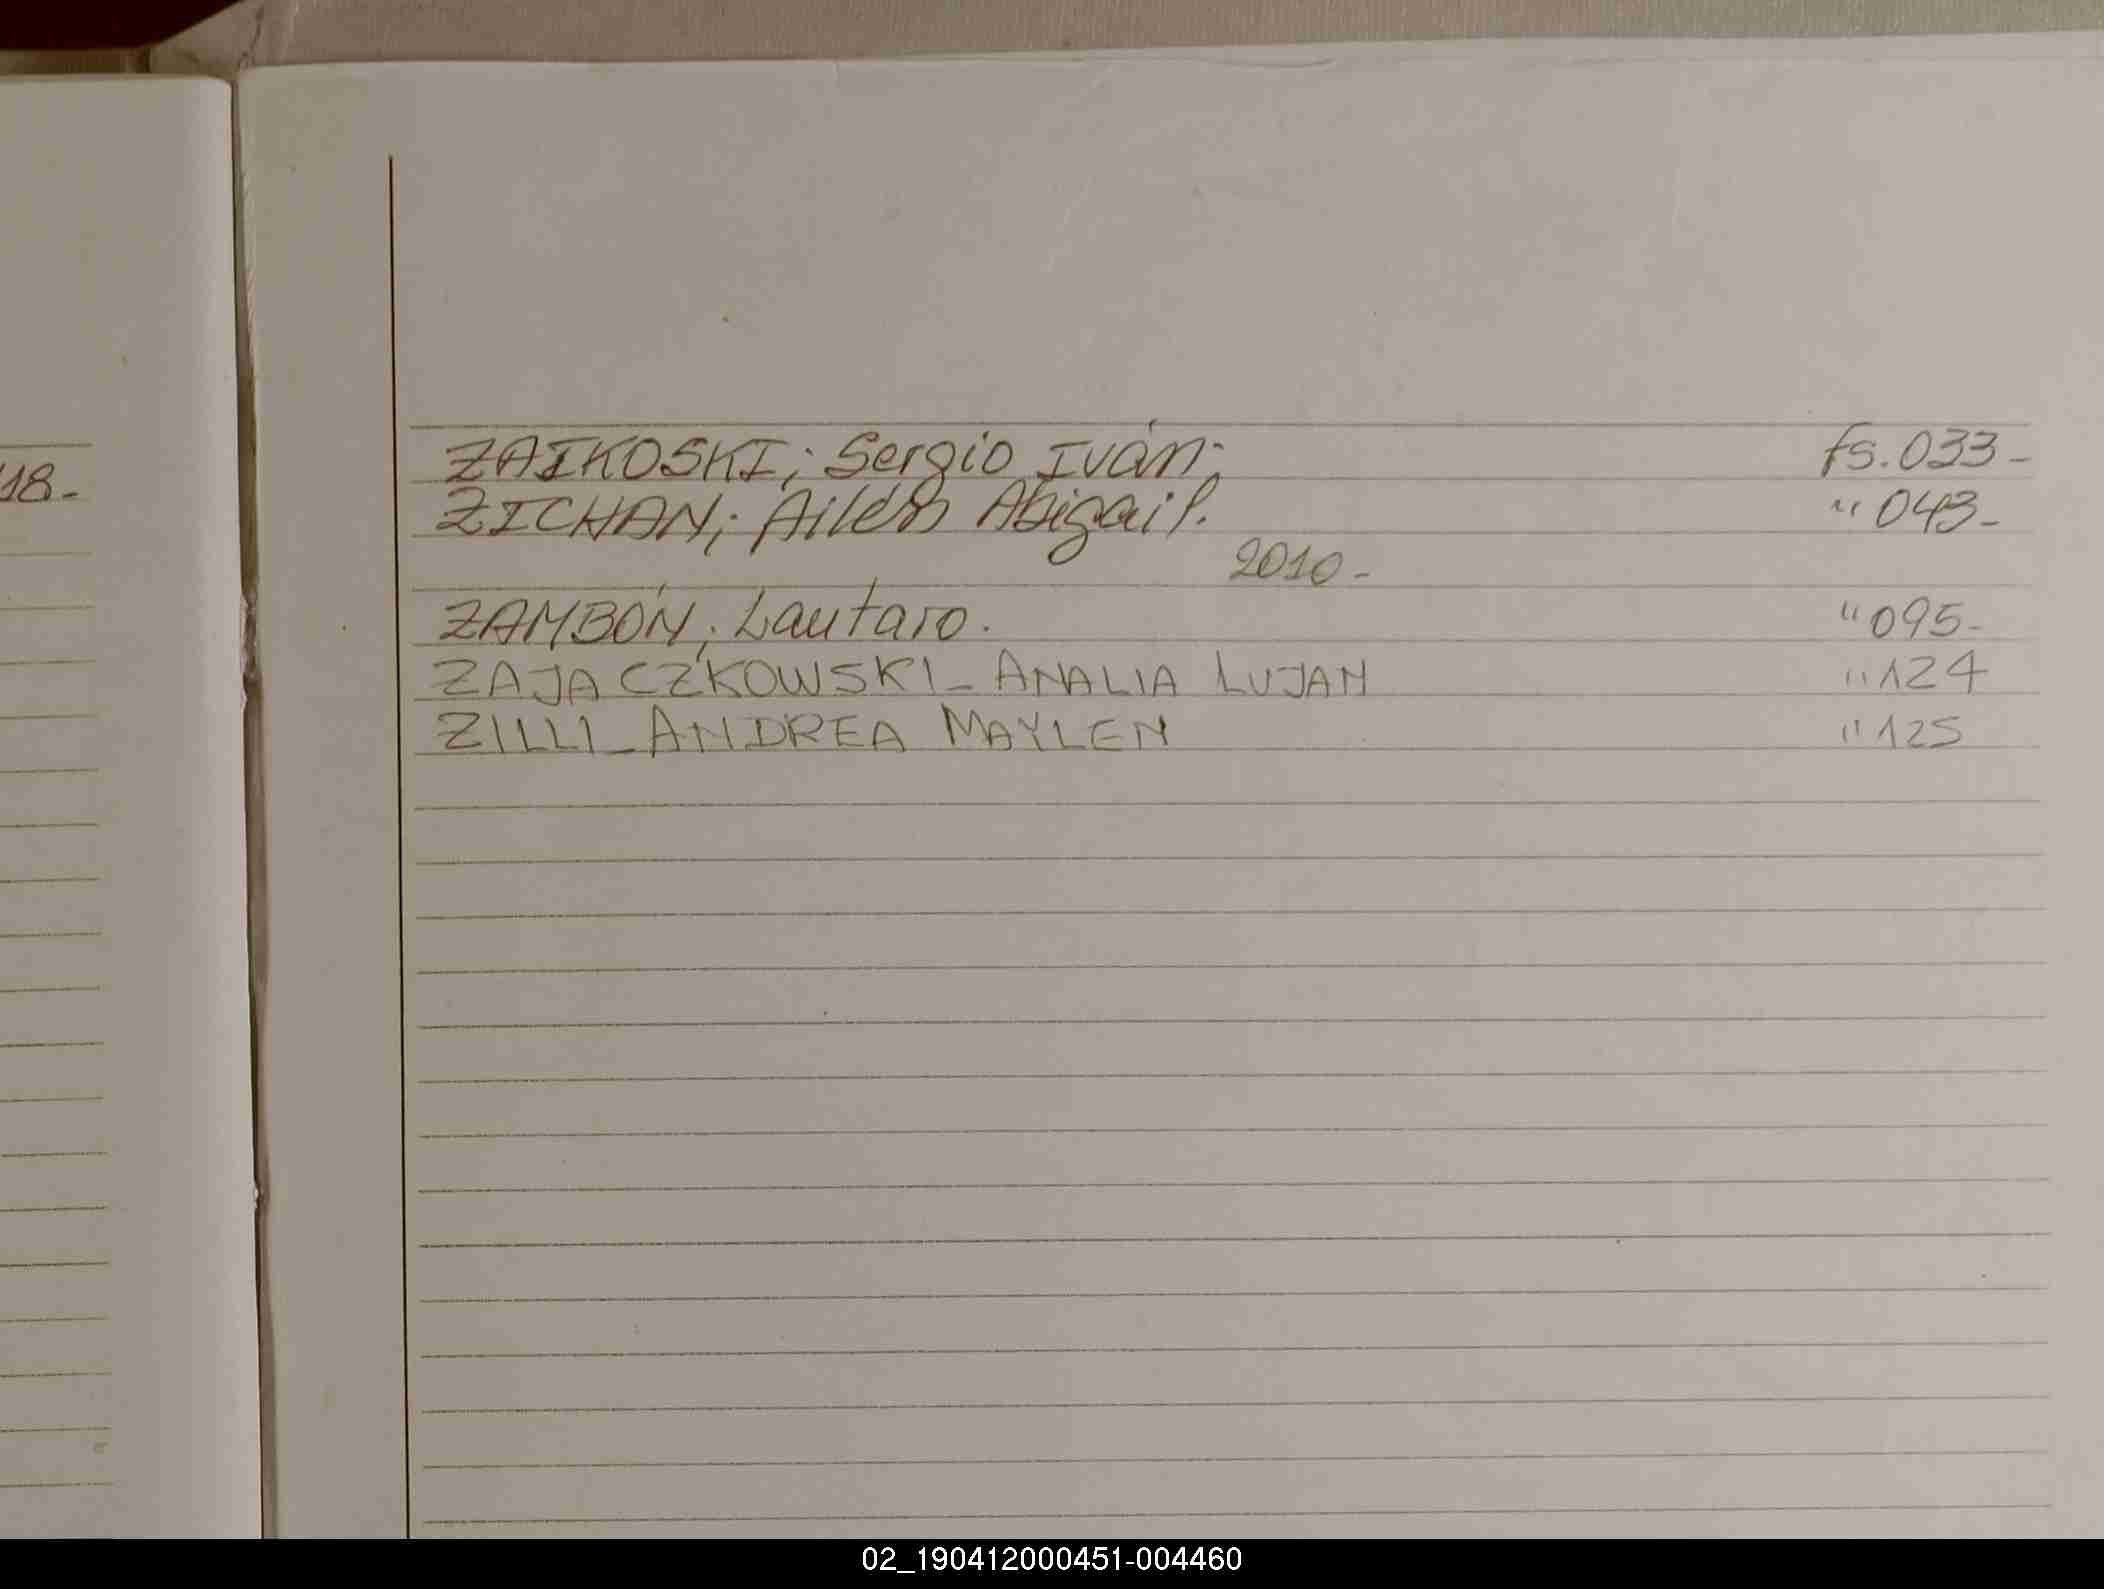 18-
ZAIKOSKI; Sergio Iván; fs. 033-
ZICHAN; Ailén Abigail. " 043-
2010-
ZAMBÓN; Lautaro. " 095-
ZAJACZKOWSKI_ ANALIA LUJAN " 124
ZILLI_ ANDREA MAYLEN " 125
02_190412000451-004460